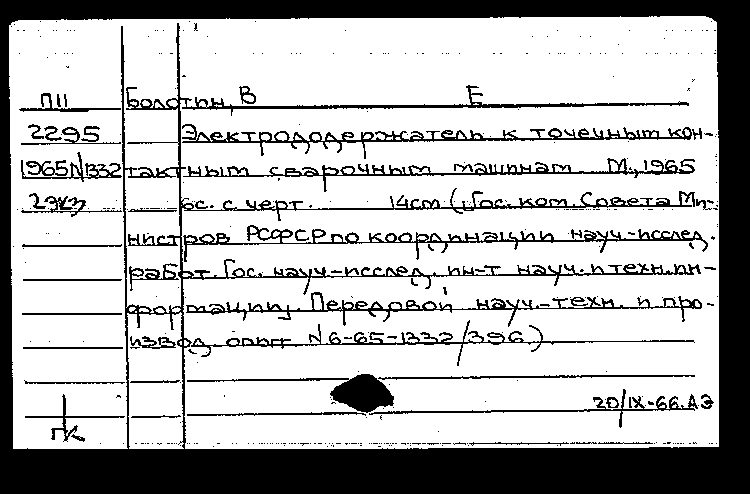 П11 Болотин, В Е
2295 Электрододержатель к точечным кон-
1965N1332 тактным сварочным машинам. М., 1965
2экз 6с. с черт. 14см (Гос. ком. Совета Ми-
нистров РСФСР по координации науч.-исслед.
работ. Гос. науч.-исслед. ин-т науч. и техн. ин-
формации. Передовой науч.-техн. и про-
извод. опыт N6-65-1332/396)
20/IX-66.АЭ
ГК